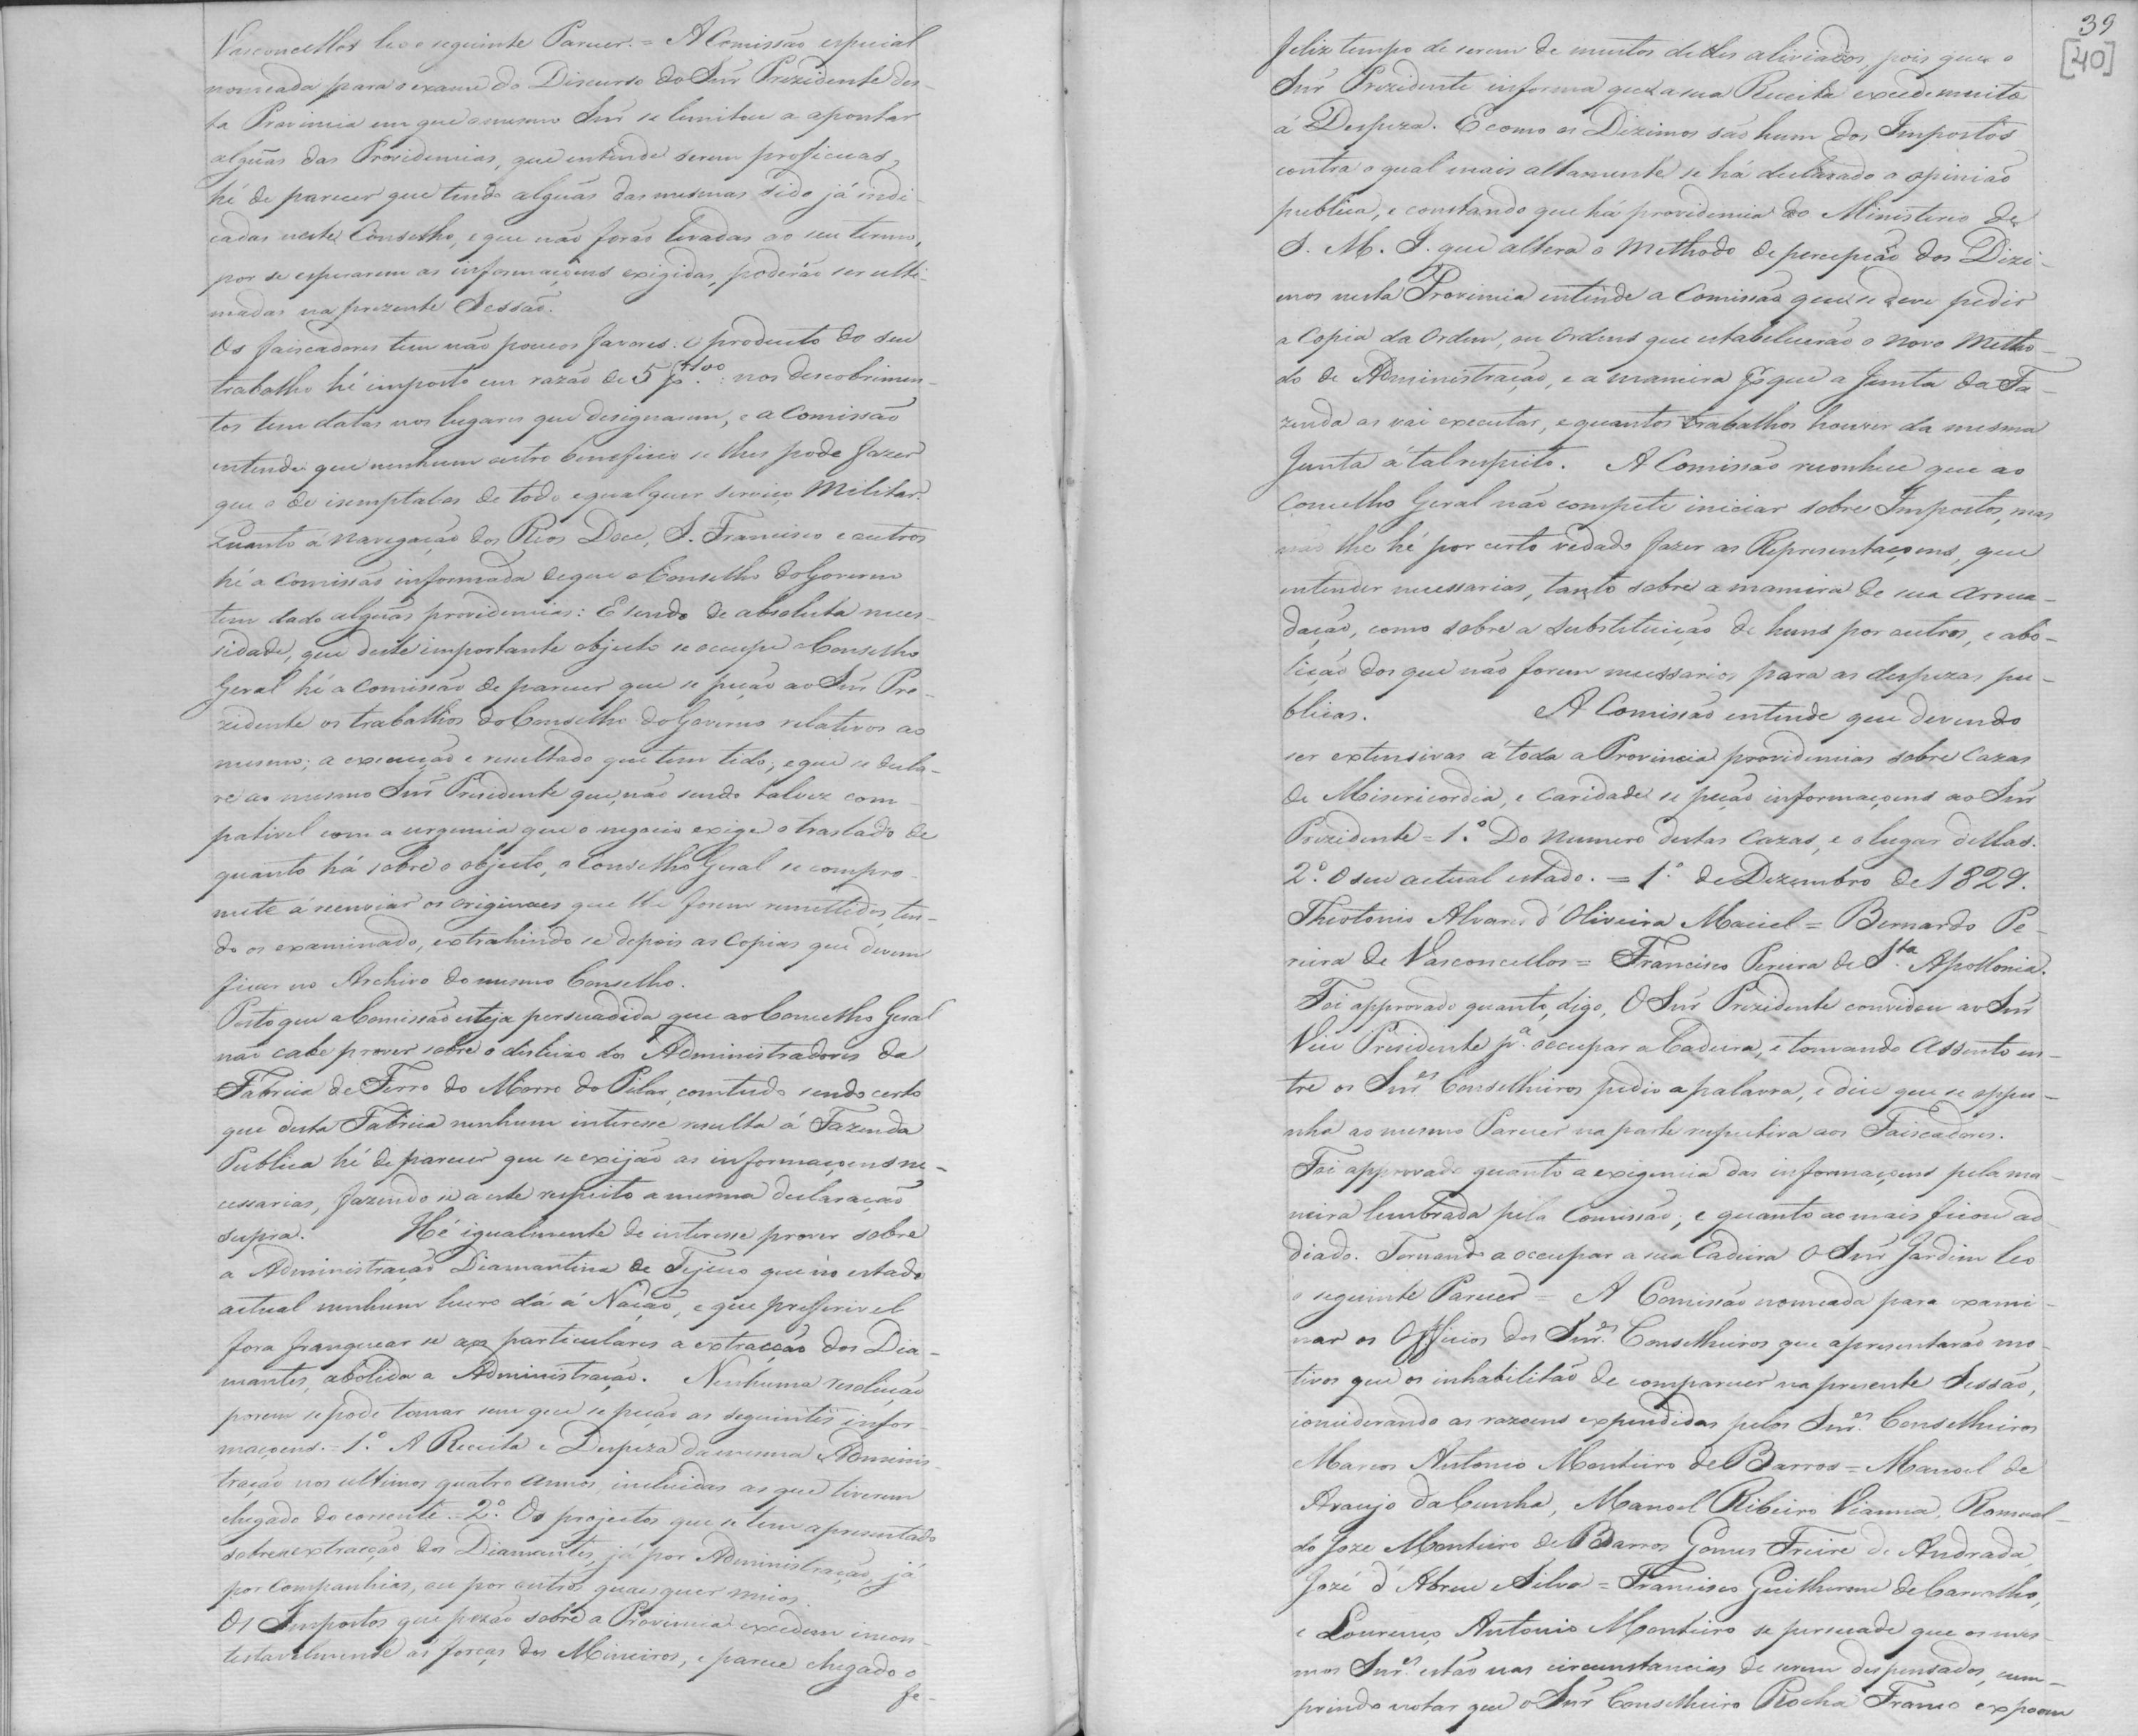 Vasconcellos leo o seguinte Parecer. = A Comissão especial
nomeada para o exame do Discurso do Snr Prezidente des-
ta Provincia em que o mesmo Snr se limitou a apontar
algũas das Providencias, que entende serem proficuas,
hé de parecer que tendo algũas das mesmas sido já indi-
cadas neste Conselho, e que não forão levadas ao seu termo,
por se esperarem as informaçoens exigidas, poderão ser ulti-
madas na prezente Sessão.
Os faiscadores tem não poucos favores: o producto do seu
trabalho hé imposto em razão de 5 p.r % : nos descobrimen-
tos tem datas nos lugares que designarem, e a Comissão
entende que nenhum outro beneficio se lhes pode fazer
que o de isemptalos de todo e qualquer serviço Militar.
Quanto á Navegação dos Rios Doce, S. Francisco e outros
hé a Comissão informada de que o Conselho do Governo
tem dado algũas providencias: E sendo de absoluta neces-
sidade, que deste importante objecto se occupe o Conselho
Geral hé a Comissão de parecer que se peção ao Snr Pre-
zidente os trabalhos do Conselho do Governo relativos ao
mesmo; a execução e resultado que tem tido; e que se decla-
re ao mesmo Snr Presidente que, não sendo talvez com-
pativel com a urgencia que o negocio exige o traslado de
quanto há sobre o objecto, o Conselho Geral se compro-
mete á reenviar os originaes que lhe forem remettidos, ten-
do os examinado, extrahindo se depois as Copias que devem
ficar no Archivo do mesmo Conselho.
Posto que a Comissão esteja persuadida que ao Conselho Geral
não cabe prover sobre o desleixo dos Administradores da
Fabrica de Ferro do Morro do Pilar, comtudo sendo certo
que desta Fabrica nenhum interesse resulta á Fazenda
Publica hé de parecer que se exijão as informaçoens ne-
cessarias, fazendo se a este respeito a mesma declaração
supra. Hé igualmente de interesse prover sobre
a Administração Diamantina de Tejuco que no estado
actual nenhum lucro dá á Nação, e que prefferivel
fora franquear se aos particulares a extracção dos Dia-
mantes, abolida a Administração. Nenhuma resolução
porem se pode tomar sem que se peção as seguintes infor-
maçoens. = 1.º A Receita e Despeza da mesma Adminis-
tração nos ultimos quatro annos, incluidas as que tiverem
chegado do corrente. = 2.º Os projectos que se tem apresentado
sobre a extracção dos Diamantes, já por Administração, já
por Companhias, ou por outros quaesquer meios.
Os Impostos que pezão sobre a Provincia excedem incon-
testavelmente as forças dos Mineiros, e parece chegado o
fe-
39
[40]
feliz tempo de serem de muitos delles aliviados, pois que o
Snr Prezidente informa que a sua Receita excede muito
á Despeza. E como os Dizimos são hum dos Impostos
contra o qual mais altamente se há declarado a opinião
publica, e constando que há providencia do Ministerio de
S. M. I. que altera o Methodo de percepção dos Dizi-
mos nesta Provincia entende a Comissão que se deve pedir
a Copia da Ordem, ou Ordens que estabelecerão o novo Metho-
do de Administração, e a maneira por que a Junta da Fa-
zenda as vai executar, e quantos trabalhos houver da mesma
Junta á tal respeito. A Comissão reconhece que ao
Conselho Geral não compete iniciar sobre Impostos, mas
não lhe hé por certo vedado fazer as Representaçoens, que
entender necessarias, tanto sobre a maneira de sua arreca-
dação, como sobre a substituição de huns por outros, e abo-
lição dos que não forem necessarios para as despezas pu-
blicas. A Comissão entende que devendo
ser extensivas á toda a Provincia providencias sobre Cazas
de Misericordia, e Caridade se peção informaçoens ao Snr
Prezidente = 1.º Do numero destas Cazas, e o lugar dellas.
2.º O seu actual estado. = 1.º de Dezembro de 1829.
Theotonio Alvares d'Oliveira Maciel = Bernardo Pe-
reira de Vasconcellos = Francisco Pereira de S.ta Apollonia.
Foi approvado quanto, digo, O Snr Prezidente convidou ao Snr
Vice Presidente p.a occupar a Cadeira, e tomando Assento en-
tre os Snr.es Conselheiros pedio a palavra, e dice que se oppu-
nha ao mesmo Parecer na parte respectiva aos Faiscadores.
Foi approvado quanto a exigencia das informaçoens pela ma-
neira lembrada pela Comissão; e quanto ao mais ficou ad-
diado. Tornando a occupar a sua Cadeira O Snr Jardim leo
o seguinte Parecer = A Comissão nomeada para exami-
nar os Officios dos Snr.es Conselheiros que apresentarão mo-
tivos que os inhabilitão de comparecer na presente Sessão,
considerando as razoens expendidas pelos Snr.es Conselheiros
Marcos Antonio Monteiro de Barros = Manoel de
Araujo da Cunha, Manoel Ribeiro Vianna, Romual-
do Joze Monteiro de Barros Gomes Freire de Andrada,
Jozé d'Abreu e Silva = Francisco Guilherme de Carvalho,
e Lourenço Antonio Monteiro se persuade que os mes-
mos Snr.es estão nas circunstancias de serem despensados, cum-
prindo notar que o Snr Conselheiro Rocha Franco expoem